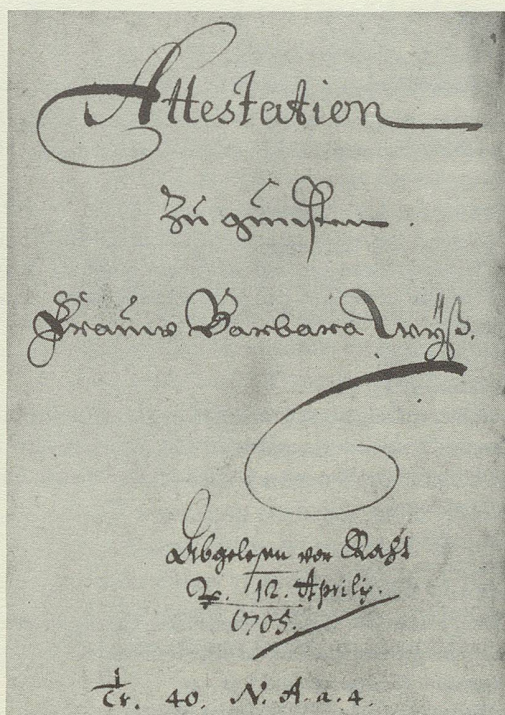 Attestation
Zu gunsten.
Frauw Barbara Wÿß.
Abgelesen vor Raht
12. Aprilis.
1705.
Tr. 40. N. A. a. 4.